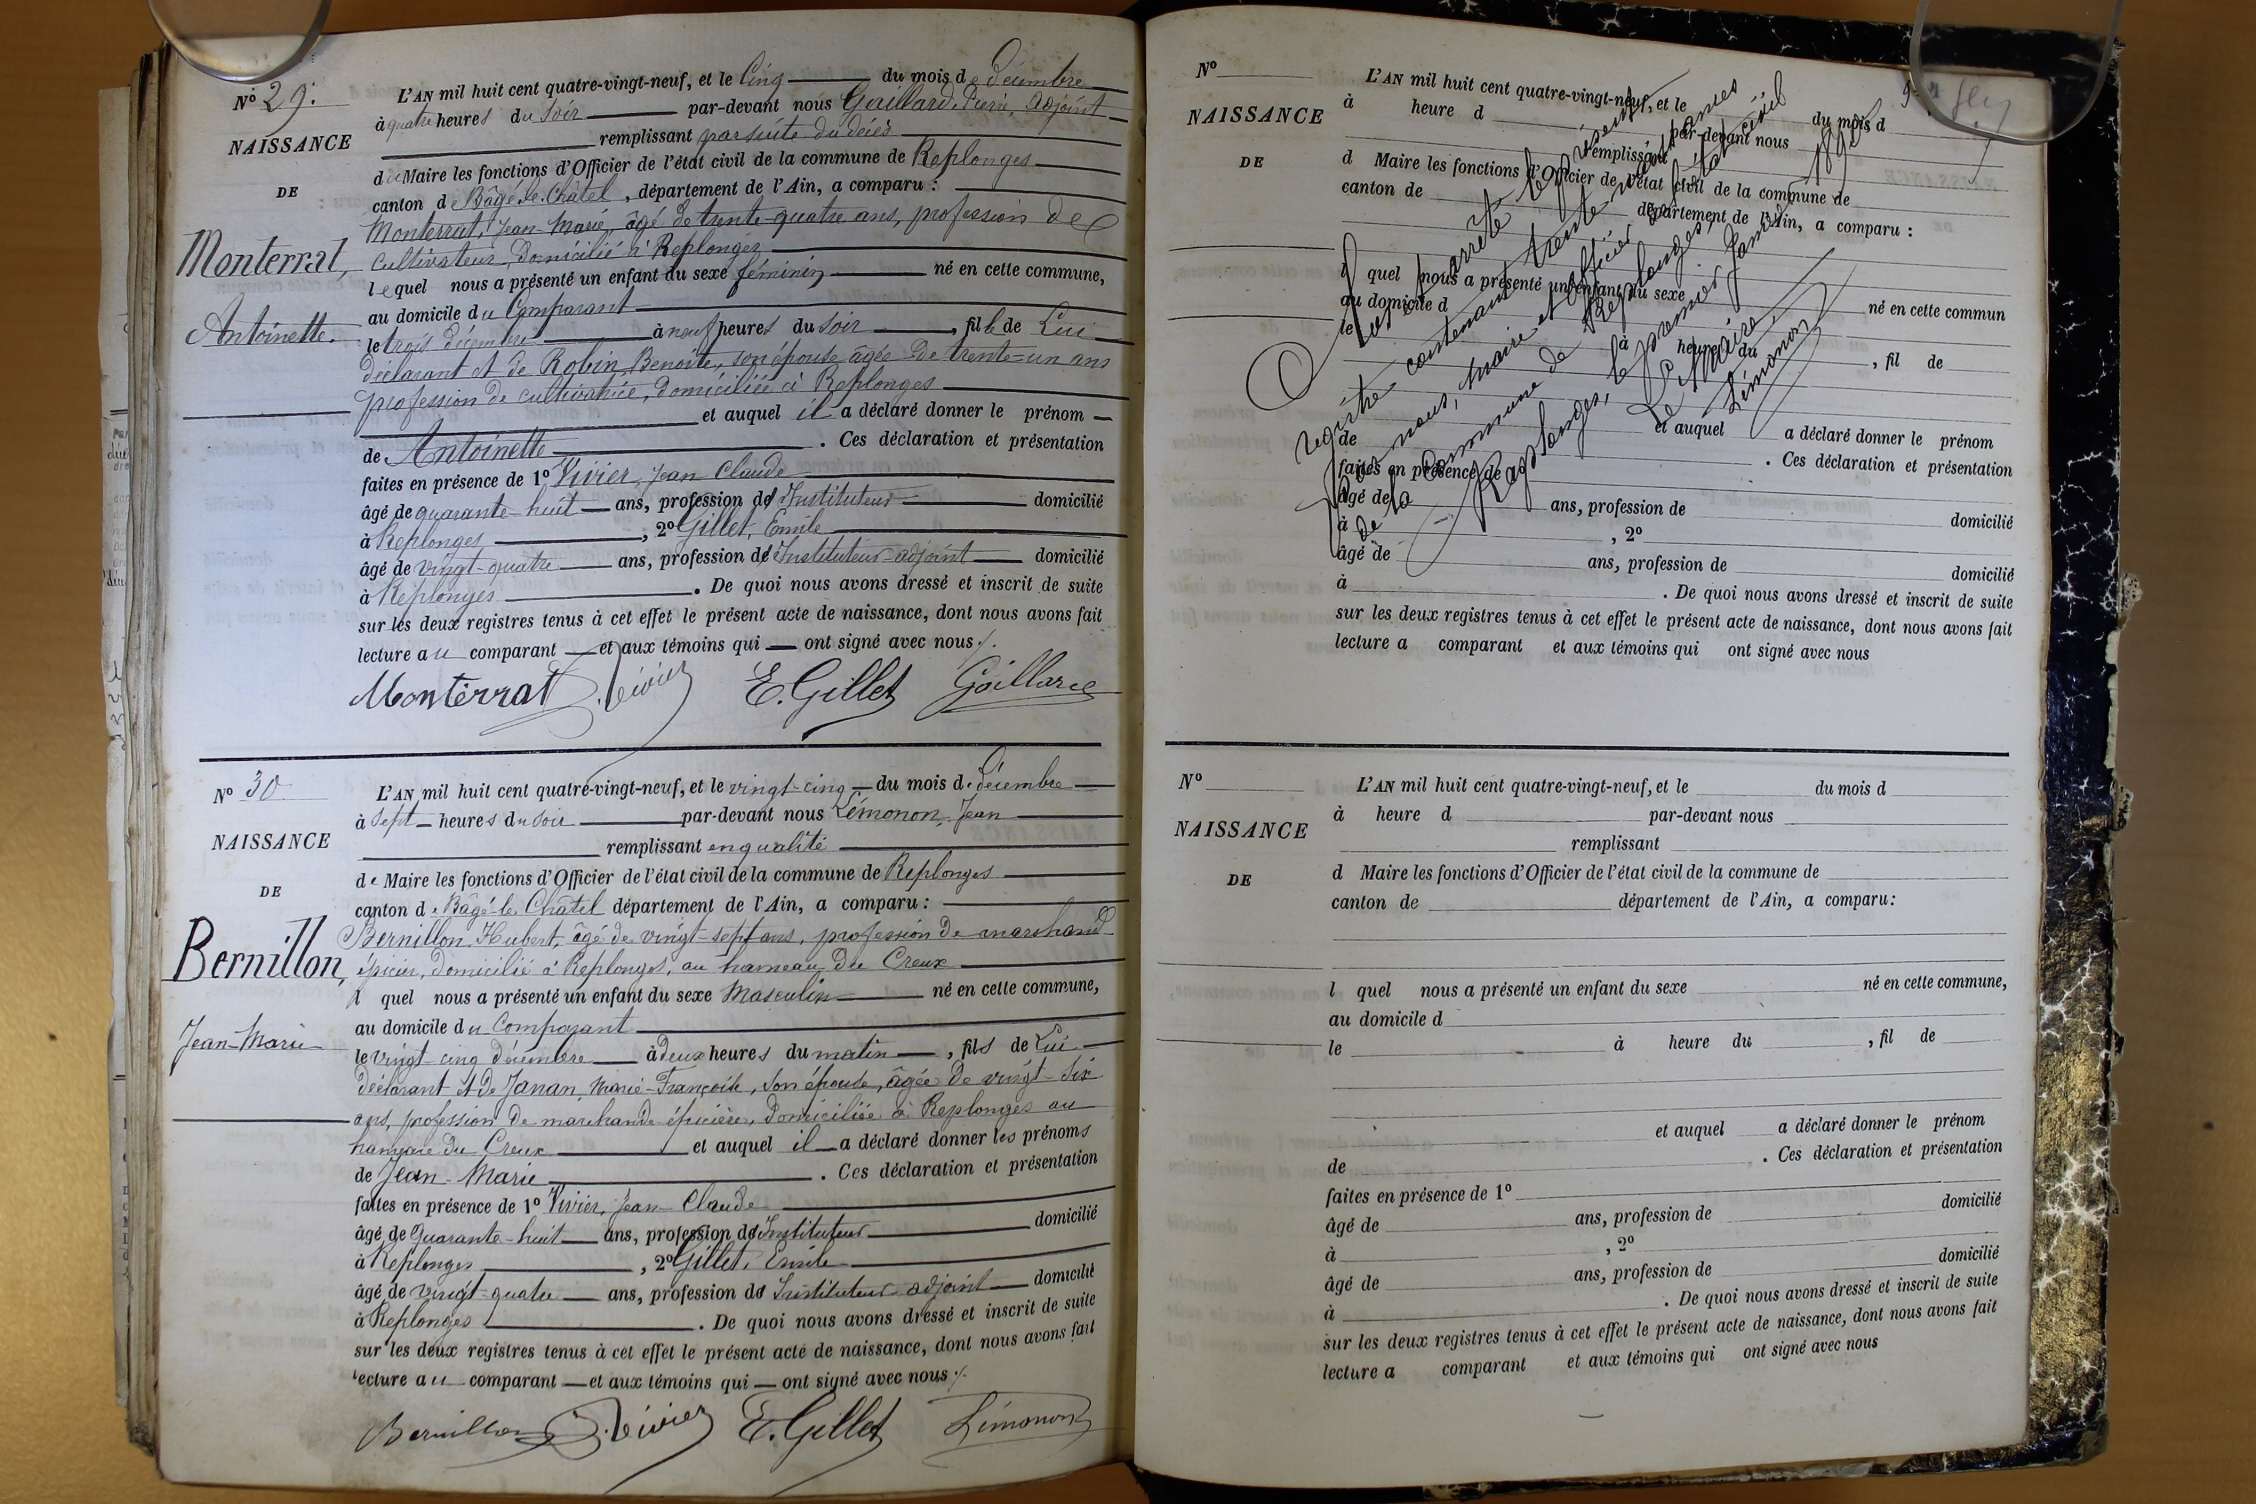 N° 29.
NAISSANCE
DE
Monterrat,
Antoinette.
L'AN mil huit cent quatre-vingt-neuf, et le Cinq du mois de décembre
à quatre heures du soir par-devant nous Gaillard, Pierre, adjoint
remplissant par suite du décès
du Maire les fonctions d'Officier de l'état civil de la commune de Replonges
canton de Bâgé-le-Châtel, département de l'Ain, a comparu :
Monterrat, Jean-Marie, âgé de trente-quatre ans, profession de
cultivateur, domicilié à Replonges
lequel nous a présenté un enfant du sexe féminin né en cette commune,
au domicile du Comparant
le trois décembre à neuf heures du soir, fille de Lui
déclarant et de Robin, Benoite, son épouse, âgée de trente-un ans
profession de cultivatrice, domiciliée à Replonges
et auquel il a déclaré donner le prénom
de Antoinette. Ces déclaration et présentation
faites en présence de 1° Vivier, Jean Claude
âgé de quarante-huit ans, profession d'Instituteur domicilié
à Replonges, 2° Gillet, Emile
âgé de vingt-quatre ans, profession d'Instituteur-adjoint domicilié
à Replonges. De quoi nous avons dressé et inscrit de suite
sur les deux registres tenus à cet effet le présent acte de naissance, dont nous avons fait
lecture au comparant et aux témoins qui ont signé avec nous ./.
Monterrat J. Vivier E. Gillet Gaillard
N° 30
NAISSANCE
DE
Bernillon,
Jean-Marie
L'AN mil huit cent quatre-vingt-neuf, et le vingt-cinq du mois de décembre
à sept heures du soir par-devant nous Lémonon, Jean
remplissant en qualité
de Maire les fonctions d'Officier de l'état civil de la commune de Replonges
canton de Bâgé-le-Châtel département de l'Ain, a comparu :
Bernillon, Hubert, âgé de vingt-sept ans, profession de marchand
épicier, domicilié à Replonges, au hameau du Creux
l quel nous a présenté un enfant du sexe Masculin né en cette commune,
au domicile du Comparant
le vingt-cinq décembre à deux heures du matin, fils de Lui
déclarant et de Janan, Marie-Françoise, son épouse, âgée de vingt-six
ans, profession de marchande épicière, domiciliée à Replonges au
hameau du Creux et auquel il a déclaré donner les prénoms
de Jean-Marie. Ces déclaration et présentation
faites en présence de 1° Vivier, Jean Claude
âgé de Quarante-huit ans, profession d'Instituteur domicilié
à Replonges, 2° Gillet, Emile
âgé de vingt-quatre ans, profession d'Instituteur adjoint domicilié
à Replonges. De quoi nous avons dressé et inscrit de suite
sur les deux registres tenus à cet effet le présent acte de naissance, dont nous avons fait
lecture au comparant et aux témoins qui ont signé avec nous ./.
Bernillon J. Vivier E. Gillet Lémonon
N°
NAISSANCE
DE
L'AN mil huit cent quatre-vingt-neuf, et le du mois d
à heure d par-devant nous
remplissant
d Maire les fonctions d'Officier de l'état civil de la commune de
canton de département de l'Ain, a comparu :
l quel nous a présenté un enfant du sexe né en cette commun
au domicile d
le à heure du , fil de
et auquel a déclaré donner le prénom
de . Ces déclaration et présentation
faites en présence de
âgé de ans, profession de domicilié
à , 2°
âgé de ans, profession de domicilié
à . De quoi nous avons dressé et inscrit de suite
sur les deux registres tenus à cet effet le présent acte de naissance, dont nous avons fait
lecture a comparant et aux témoins qui ont signé avec nous
Clos et arrêté le présent
registre contenant trente naissances
Par nous, Maire et officier de l'état civil
de la Commune de Replonges,
à Replonges, le premier Janvier 1890
Le Maire,
Lémonon
N°
NAISSANCE
DE
L'AN mil huit cent quatre-vingt-neuf, et le du mois d
à heure d par-devant nous
remplissant
d Maire les fonctions d'Officier de l'état civil de la commune de
canton de département de l'Ain, a comparu :
l quel nous a présenté un enfant du sexe né en cette commune,
au domicile d
le à heure du , fil de
et auquel a déclaré donner le prénom
de . Ces déclaration et présentation
faites en présence de 1°
âgé de ans, profession de domicilié
à , 2°
âgé de ans, profession de domicilié
à . De quoi nous avons dressé et inscrit de suite
sur les deux registres tenus à cet effet le présent acte de naissance, dont nous avons fait
lecture a comparant et aux témoins qui ont signé avec nous